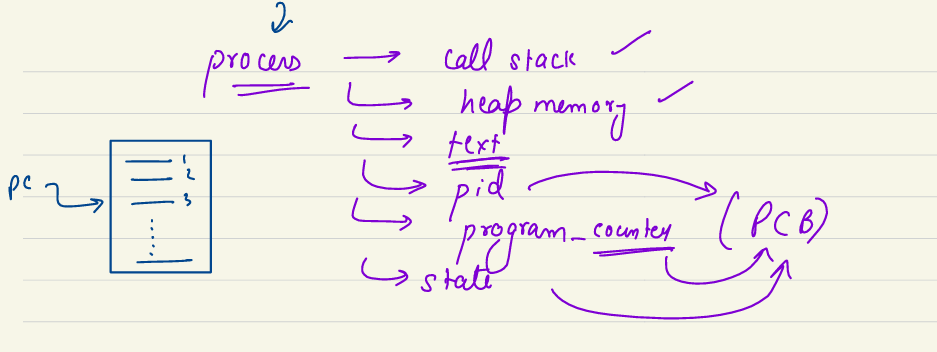 process → call stack ✓
heap memory ✓
text
pid
(PCB)
program_counter
state
PC
1
2
3